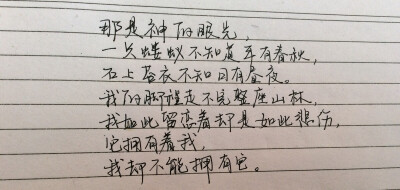 那是神的眼光，
一只蝼蚁不知道年有春秋，
石上苔衣不知日有昼夜。
我的脚程走不完整座山林，
我如此留恋着却是如此悲伤，
它拥有着我，
我却不能拥有它。